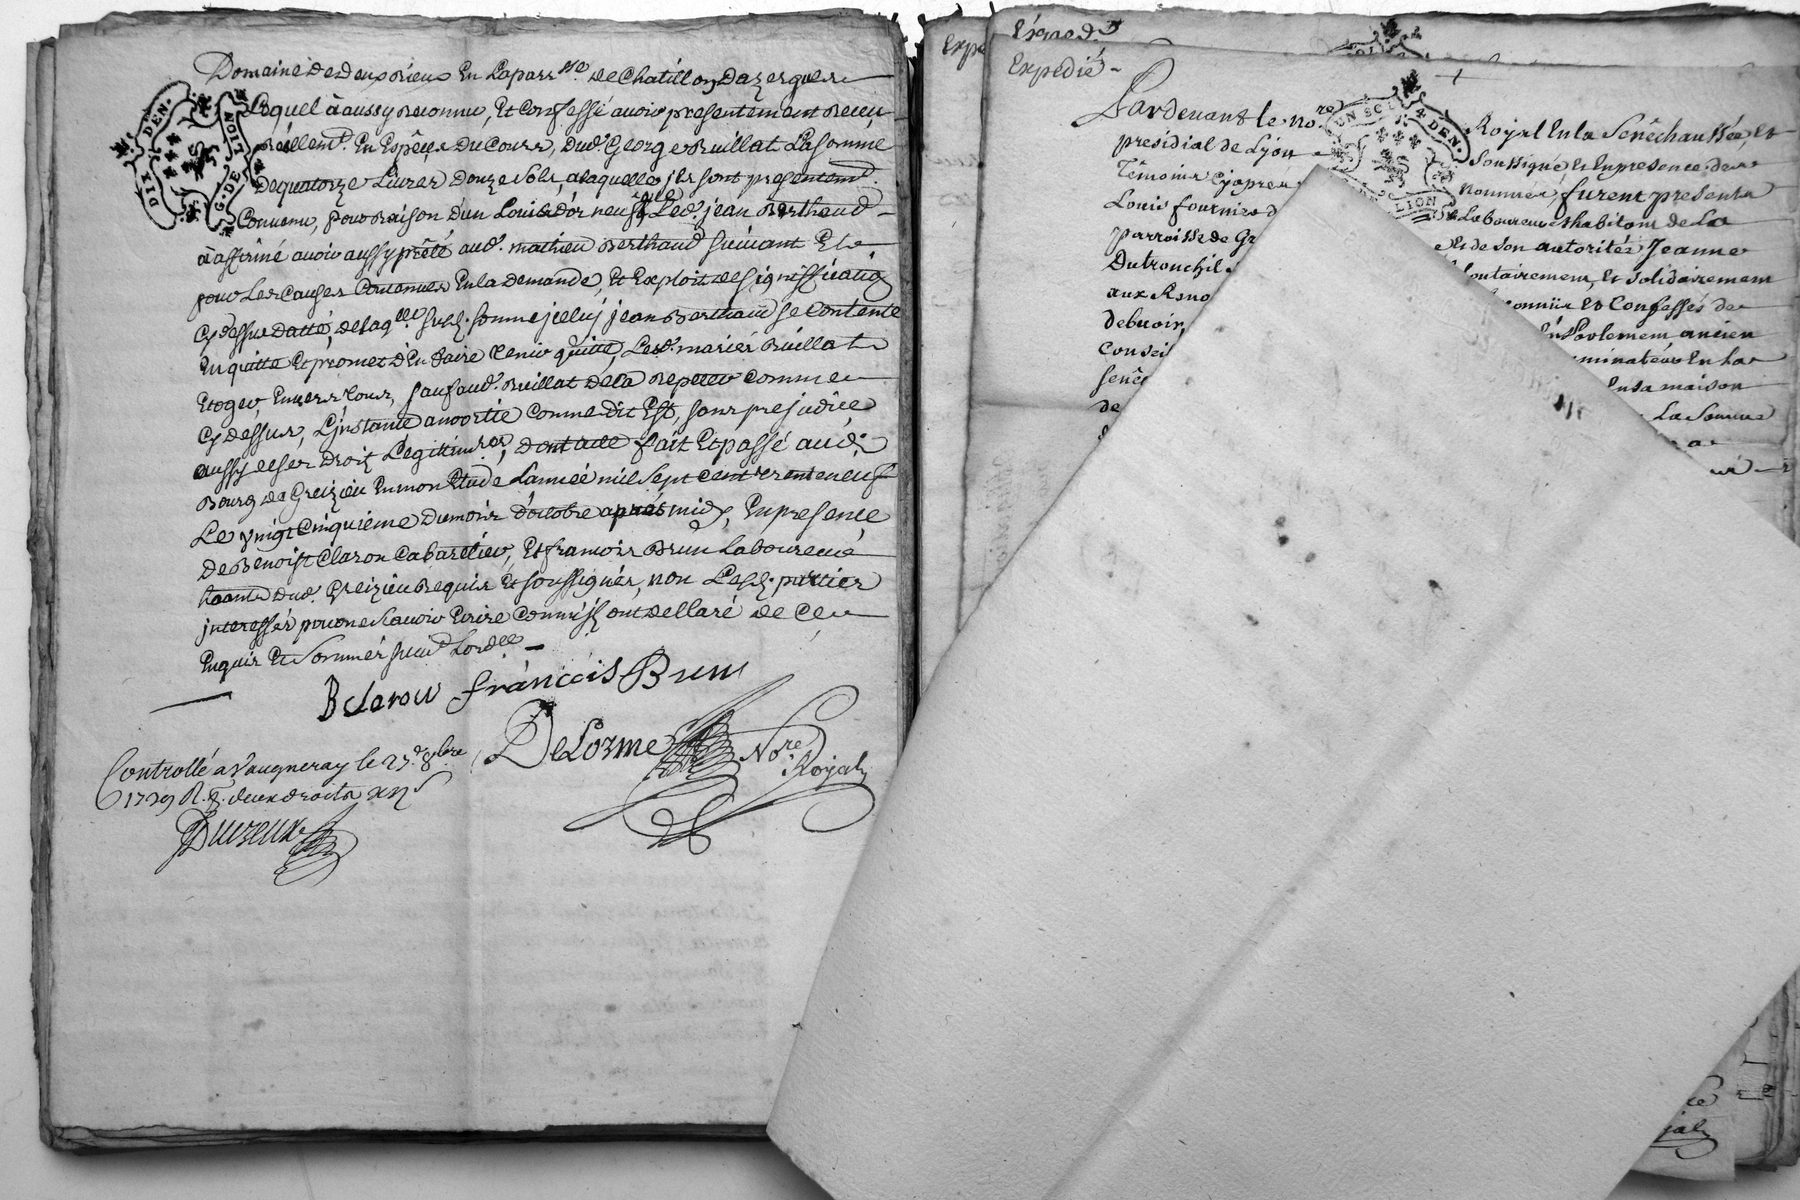 Domaine de deux rieux En Laparr.sse de Chatillon Dazergues
Lequel à aussy Reconnu, Et Confessé avoir presentement Receu
Réellemt. En Espèces Du Cours, Dud. George Buillat La somme
Dequatorze Livres Douze Sols, alaquelle jls sont presentemt.
Convenu, pour Raison d'un Louis d'or neuf que Led. jean Berthaud
à affirmé avoir aussy prêté aud. mathieu Berthaud suivant Et
pour Les Causes Contenues En la demande, Et Exploit de signiffication
Cy dessus datté, de laqlle. susd. somme jceluy jean Berthaud se Contente
En quitte Et promet d'En faire tenir quitte, Lesd. mariés Buillat
Envers tous, sauf aud. Buillat de la Repeter Comme
Cy dessus, L'jnstante amortie Comme dit Est, sans prejudice
aussy de ses Droits Legitimres, dont acte fait Et passé aud.
Bourg de Greizieu En mon Etude L'année mil sept Cent trente neuf
Le vingt Cinquième Dumois d'octobre après midy, En presence
De Benoist Claron Cabaretier, Et françois Brun Laboureur
Dud. Greizieu Requis Et soussignés, non Lesd. parties
jnteressés pour ne scavoir Ecrire Comme jls ont declaré de Ce
Enquis Et Sommés suivt Lordce
B claron françois Brun
DeLorme Nore Royal
Controllé a Vaugneray le 27.e 8bre
1739 R. deux droits
Duvreux
DIX DEN.
G. DE LION
Expedié
Expedié
Pardevant le nore Royal En la Senêchaussée, Et
presidial de Lyon Soussigné Et En presence des
Témoins Cyaprès nommés, furent presents
Louis fournier Laboureur habitant de La
parroisse de Gr Et de son autorité Jeanne
Dutronchil Solidairement
aux Reno Confessés de
debvoir, Parlement, ancien
Consei En la
senêc En sa maison
de La Somme
UN SOL 4 DEN.
LION